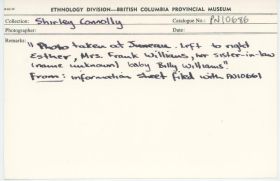 ETHNOLOGY DIVISION—BRITISH COLUMBIA PROVINCIAL MUSEUM
Collection: Shirley Connolly Catalogue No.: PN10686
Photographer: Date:
Remarks:
"Photo taken at Juneau. Left to right
Esther, Mrs. Frank Williams, her sister-in-law
(name unknown) baby Billy Williams".
From: information sheet filed with PN10661